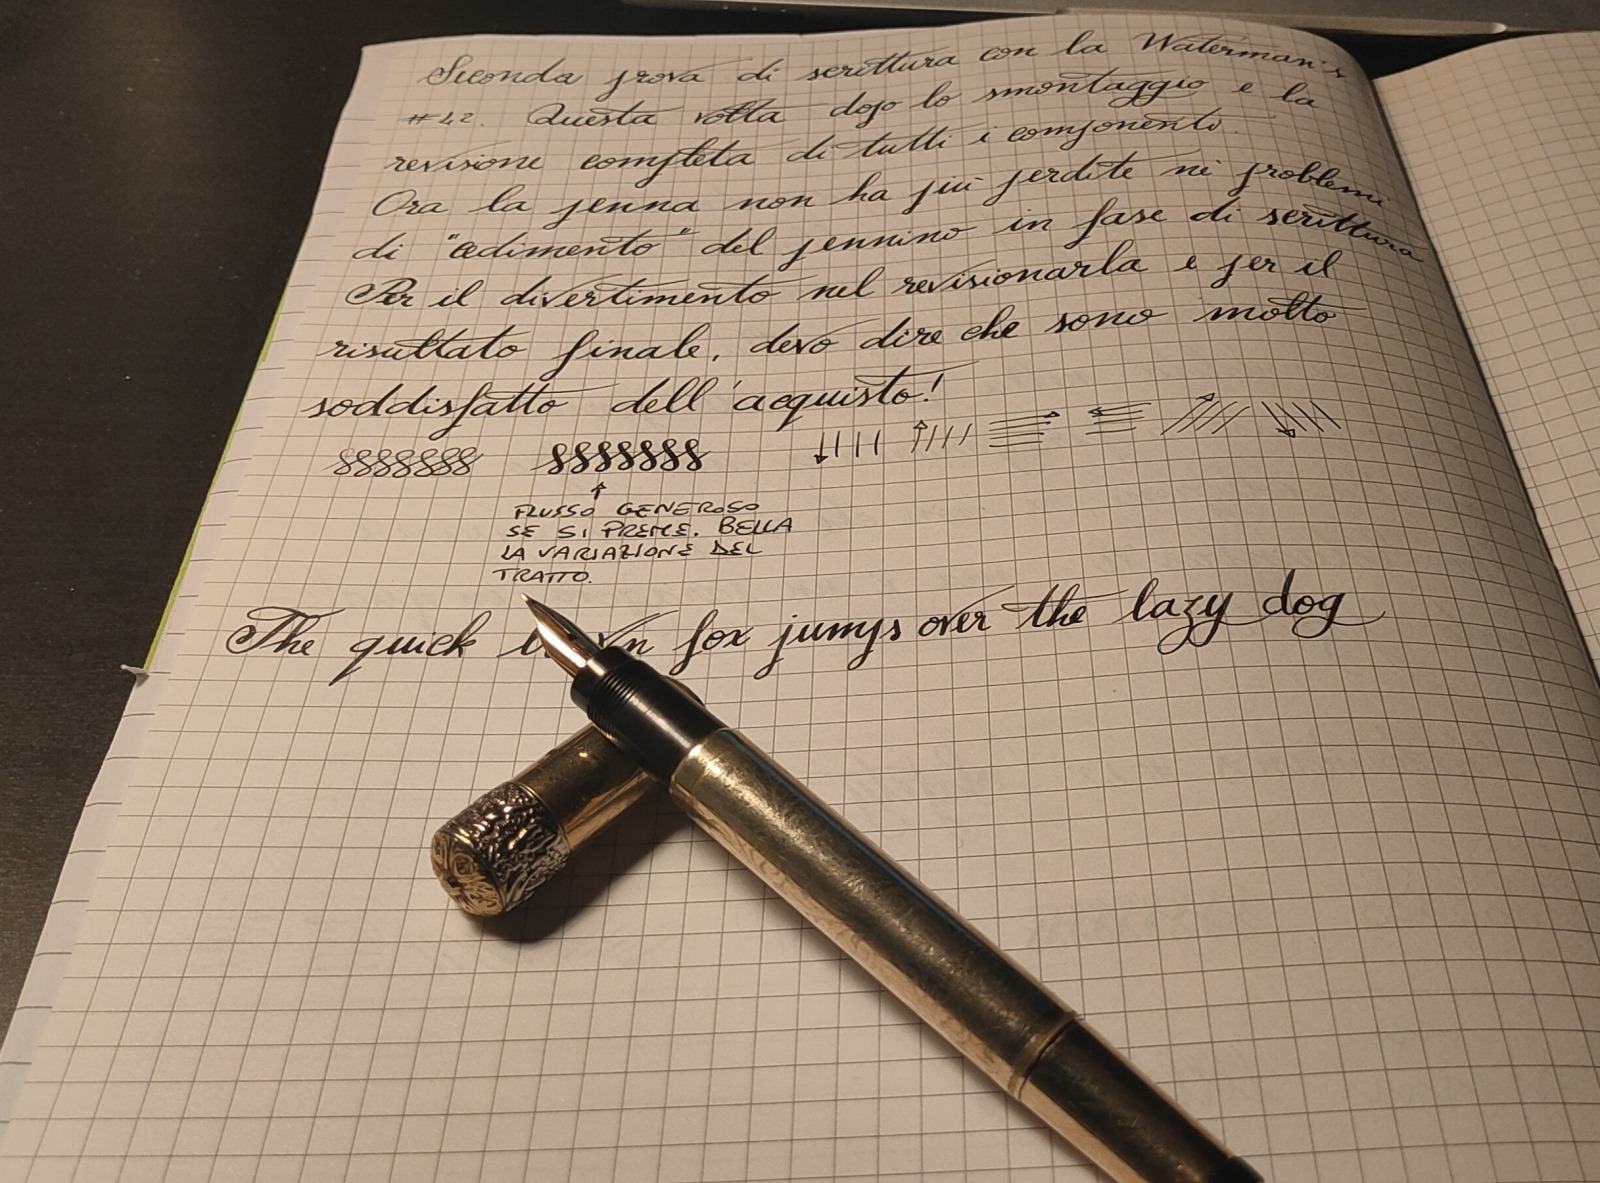 Seconda prova di scrittura con la Waterman's
#42. Questa volta dopo lo smontaggio e la
revisione completa di tutti i componenti.
Ora la penna non ha più perdite né problemi
di "cedimento" del pennino in fase di scrittura
Per il divertimento nel revisionarla e per il
risultato finale, devo dire che sono molto
soddisfatto dell'acquisto!
FLUSSO GENEROSO
SE SI PREME. BELLA
LA VARIAZIONE DEL
TRATTO.
The quick fox jumps over the lazy dog